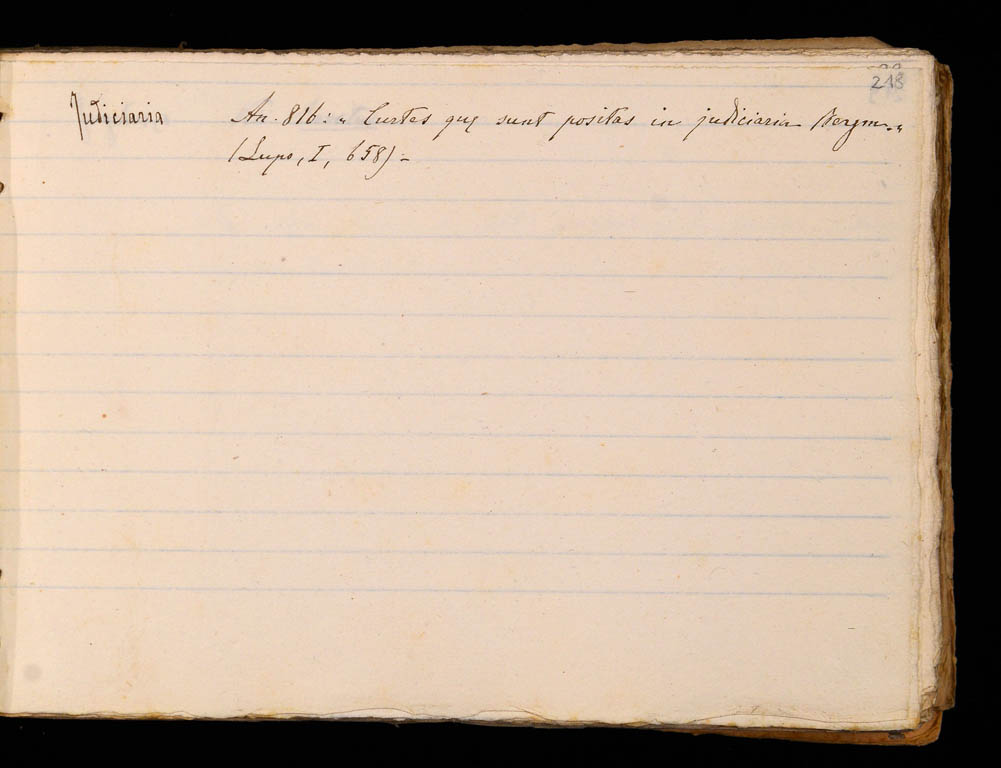 218
Judiciaria An. 816: „ Curtes quę sunt positas in judiciaria Bergm. „
(Lupo, I, 658) –